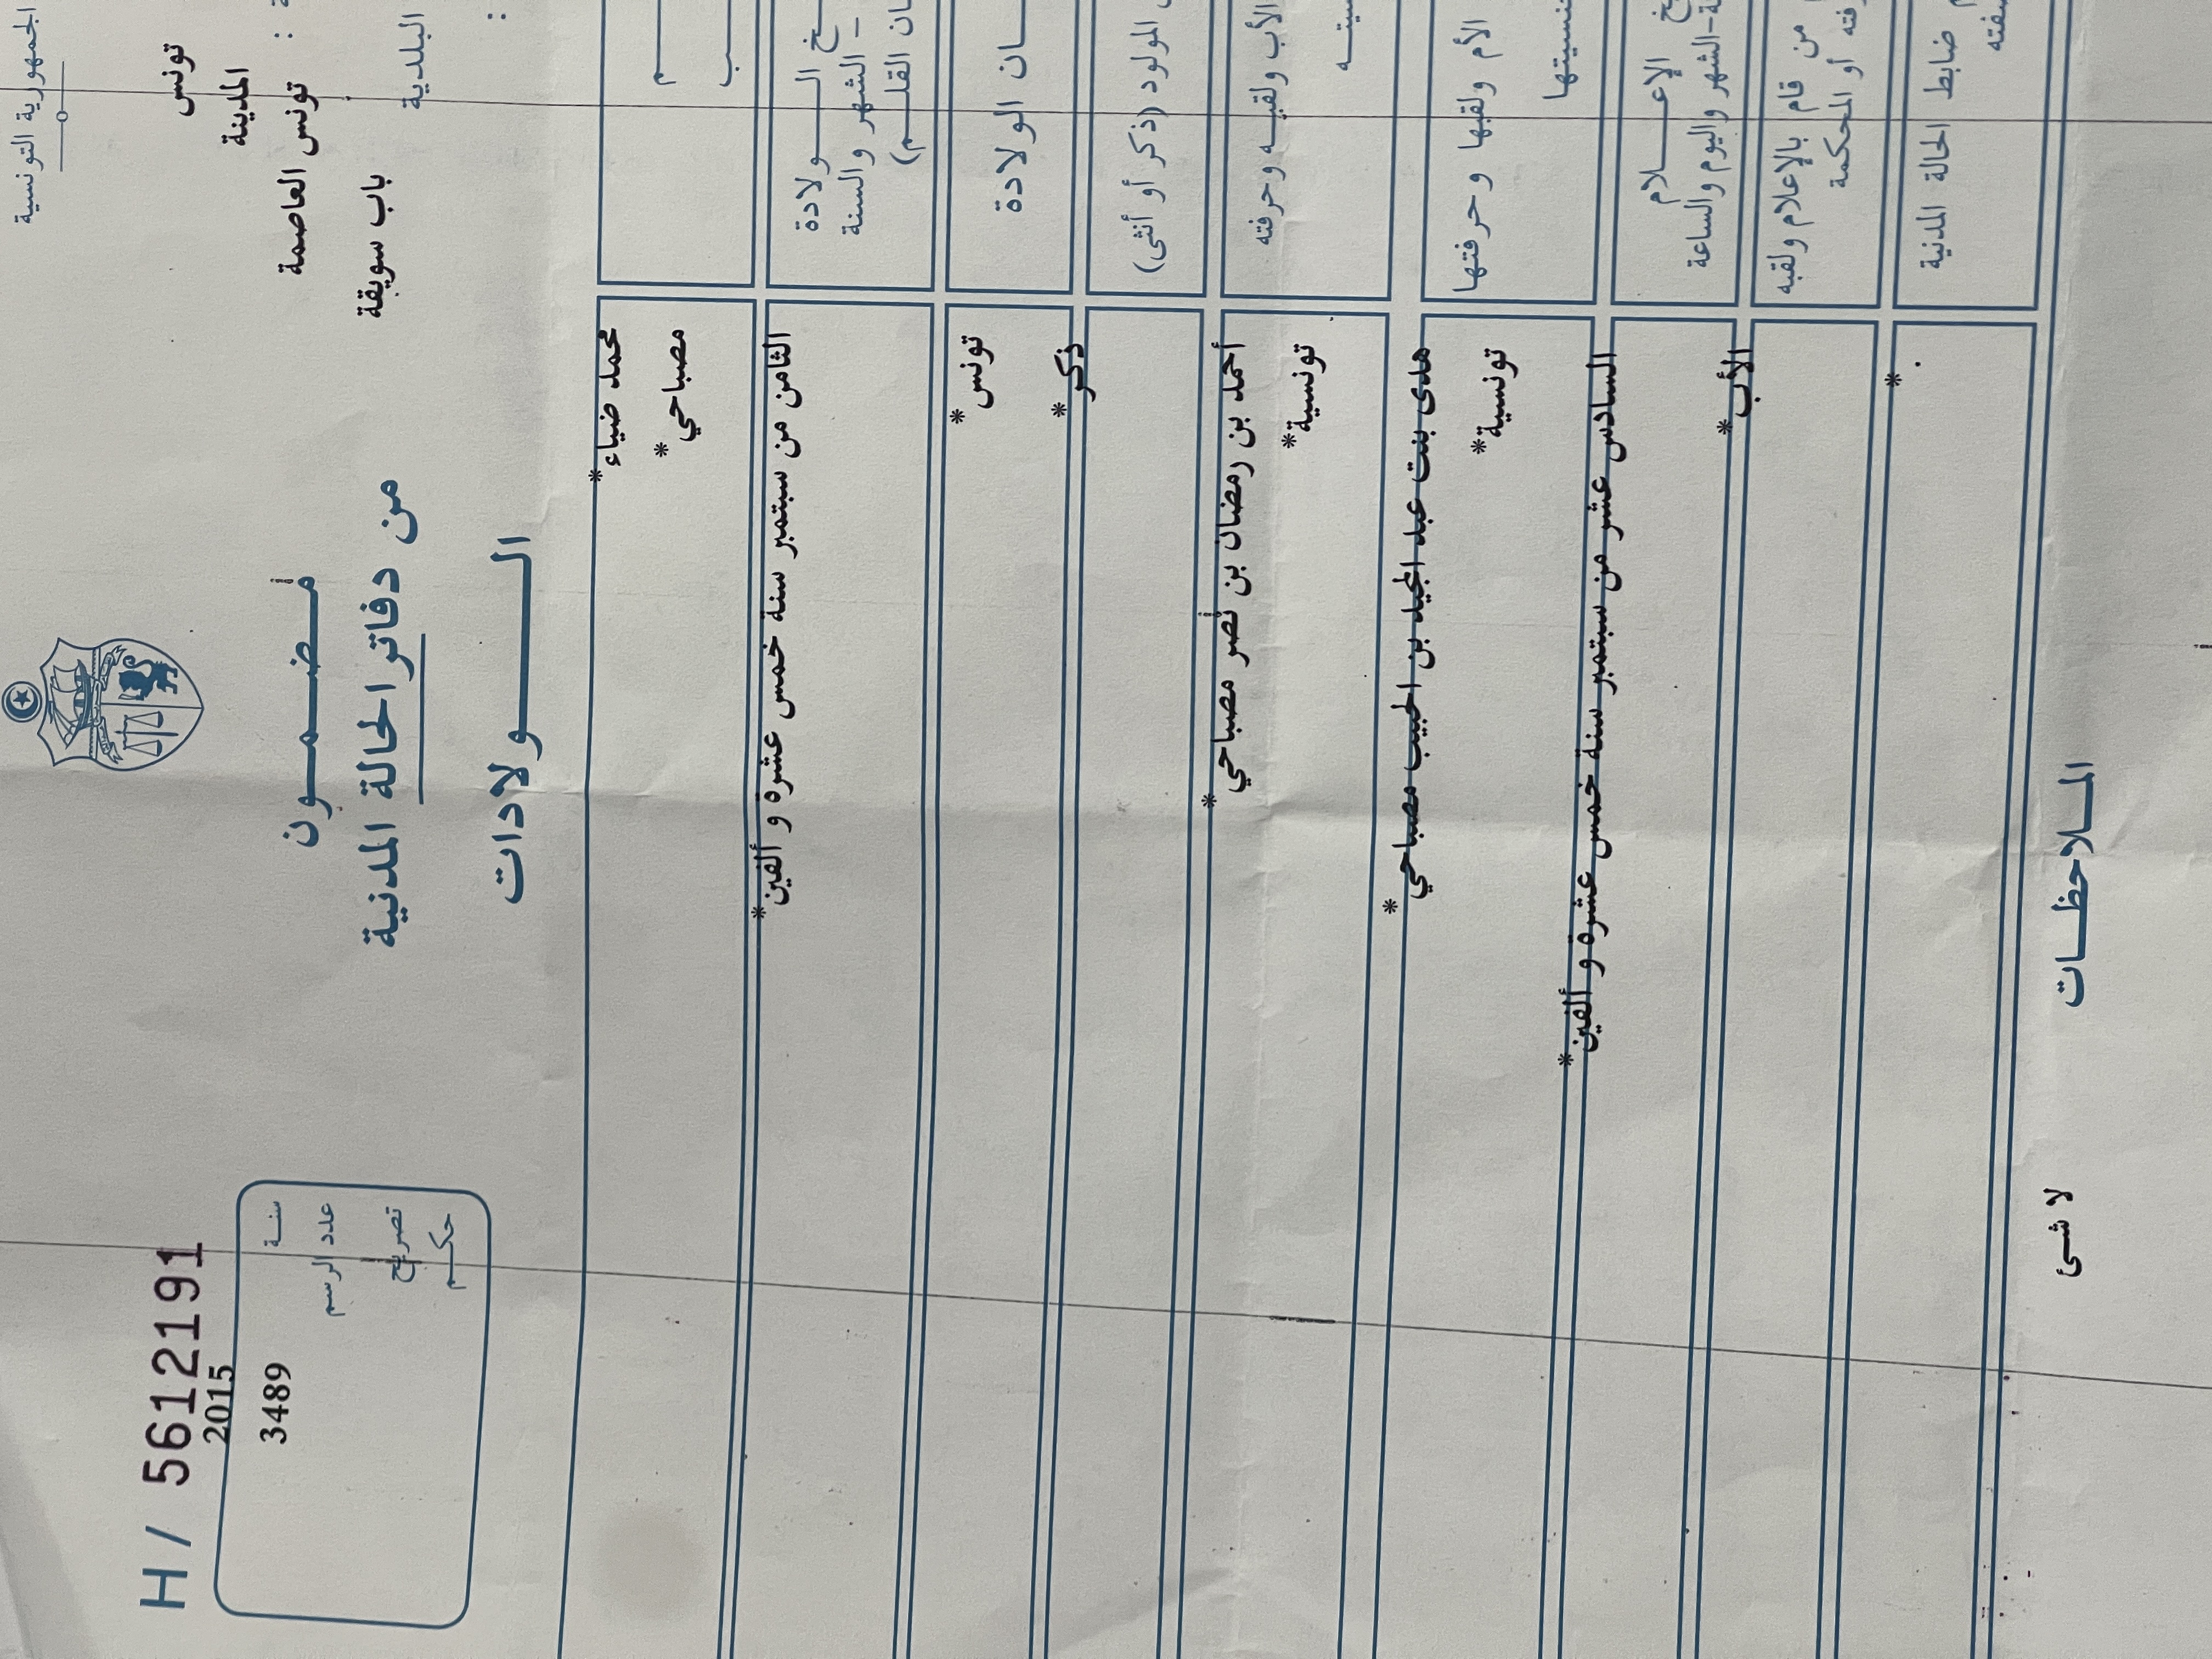 الجمهورية التونسية
تونس
المدينة
: تونس العاصمة
البلدية
باب سويقة
:
H/ 5612191
سنة 2015
عدد الرسم 3489
تصريح
حكم
مضمون
من دفاتر الحالة المدنية
الولادات
محمد ضياء*
مصباحي*
الولادة
الشهر والسنة
القلم)
الثامن من سبتمبر سنة خمس عشرة و ألفين*
الولادة
تونس*
المولود (ذكر أو أنثى)
ذكر*
الأب ولقبه وحرفته
أحمد بن رمضان بن نصر مصباحي*
تونسية*
الأم ولقبها وحرفتها
هدى بنت عبد المجيد بن الحبيب مصباحي*
تونسية*
الإعلام
الشهر واليوم والساعة
السادس عشر من سبتمبر سنة خمس عشرة و ألفين*
من قام بالإعلام ولقبه
أو المحكمة
الأب*
ضابط الحالة المدنية
. *
الملاحظات
لا شئ